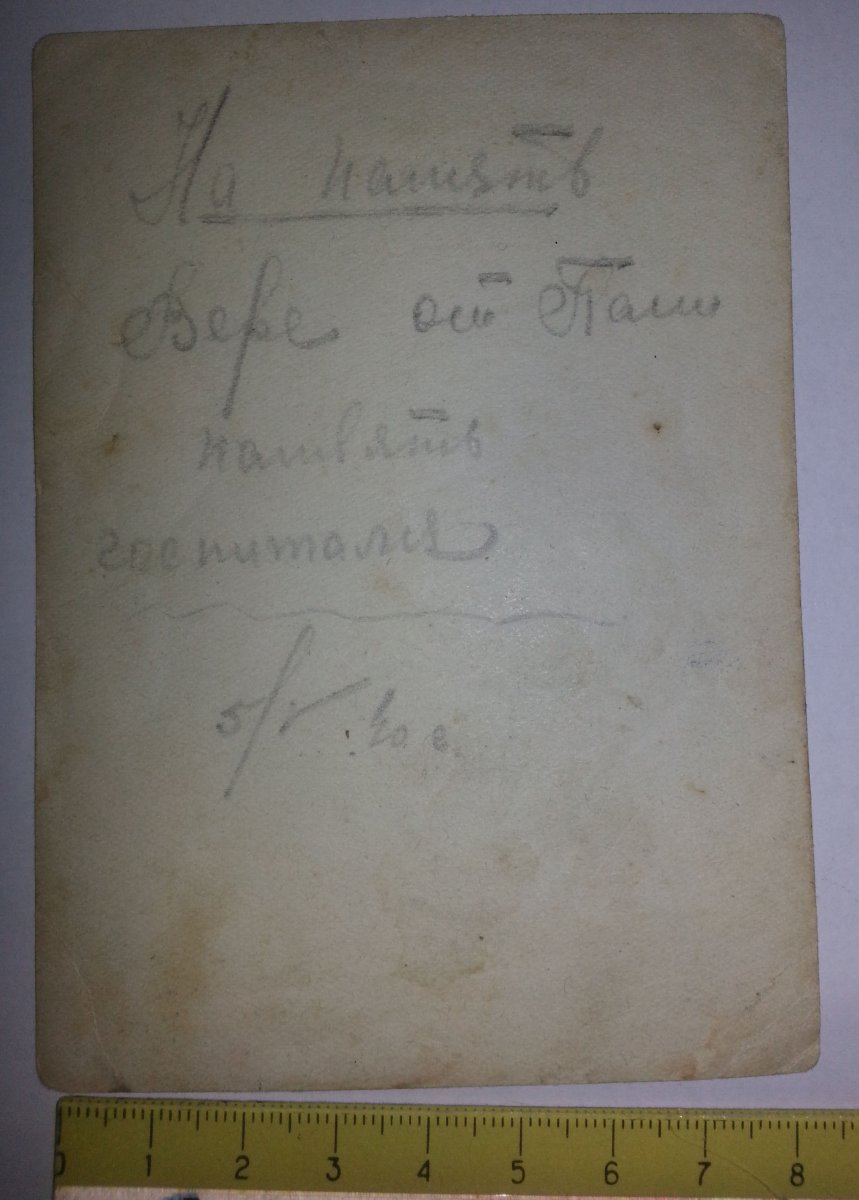 На память
Вере от Паши
память
госпиталя
5/V 40 г.
0 1 2 3 4 5 6 7 8